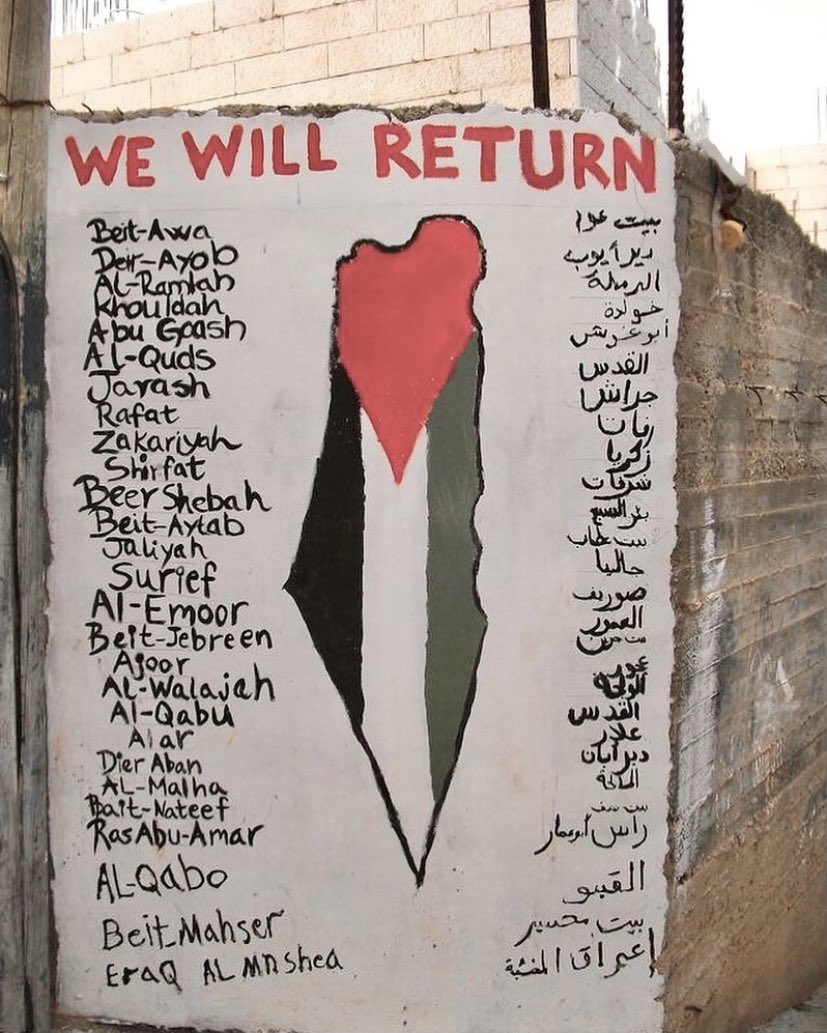 WE WILL RETURN
Beit-Awa
Deir-Ayob
AL-Ramlah
Khouldah
Abu Goash
Al-Quds
Jarash
Rafat
Zakariyah
Shirfat
Beer Shebah
Beit-Aytab
Jaliyah
Surief
Al-Emoor
Beit-Jebreen
Ajoor
AL-Walajah
Al-Qabu
Alar
Dier Aban
AL-Malha
Bait-Nateef
Ras Abu-Amar
AL-Qabo
Beit Mahser
EraQ AL Mnshea
بيت عوا
دير أيوب
الرملة
خولدة
أبو غوش
القدس
جراش
رفات
زكريا
شرفات
بئر السبع
بيت عطاب
جاليا
صوريف
العمور
عجور
الولجة
القدس
علار
دير أبان
المالحة
راس أبو عمار
القبو
بيت محسير